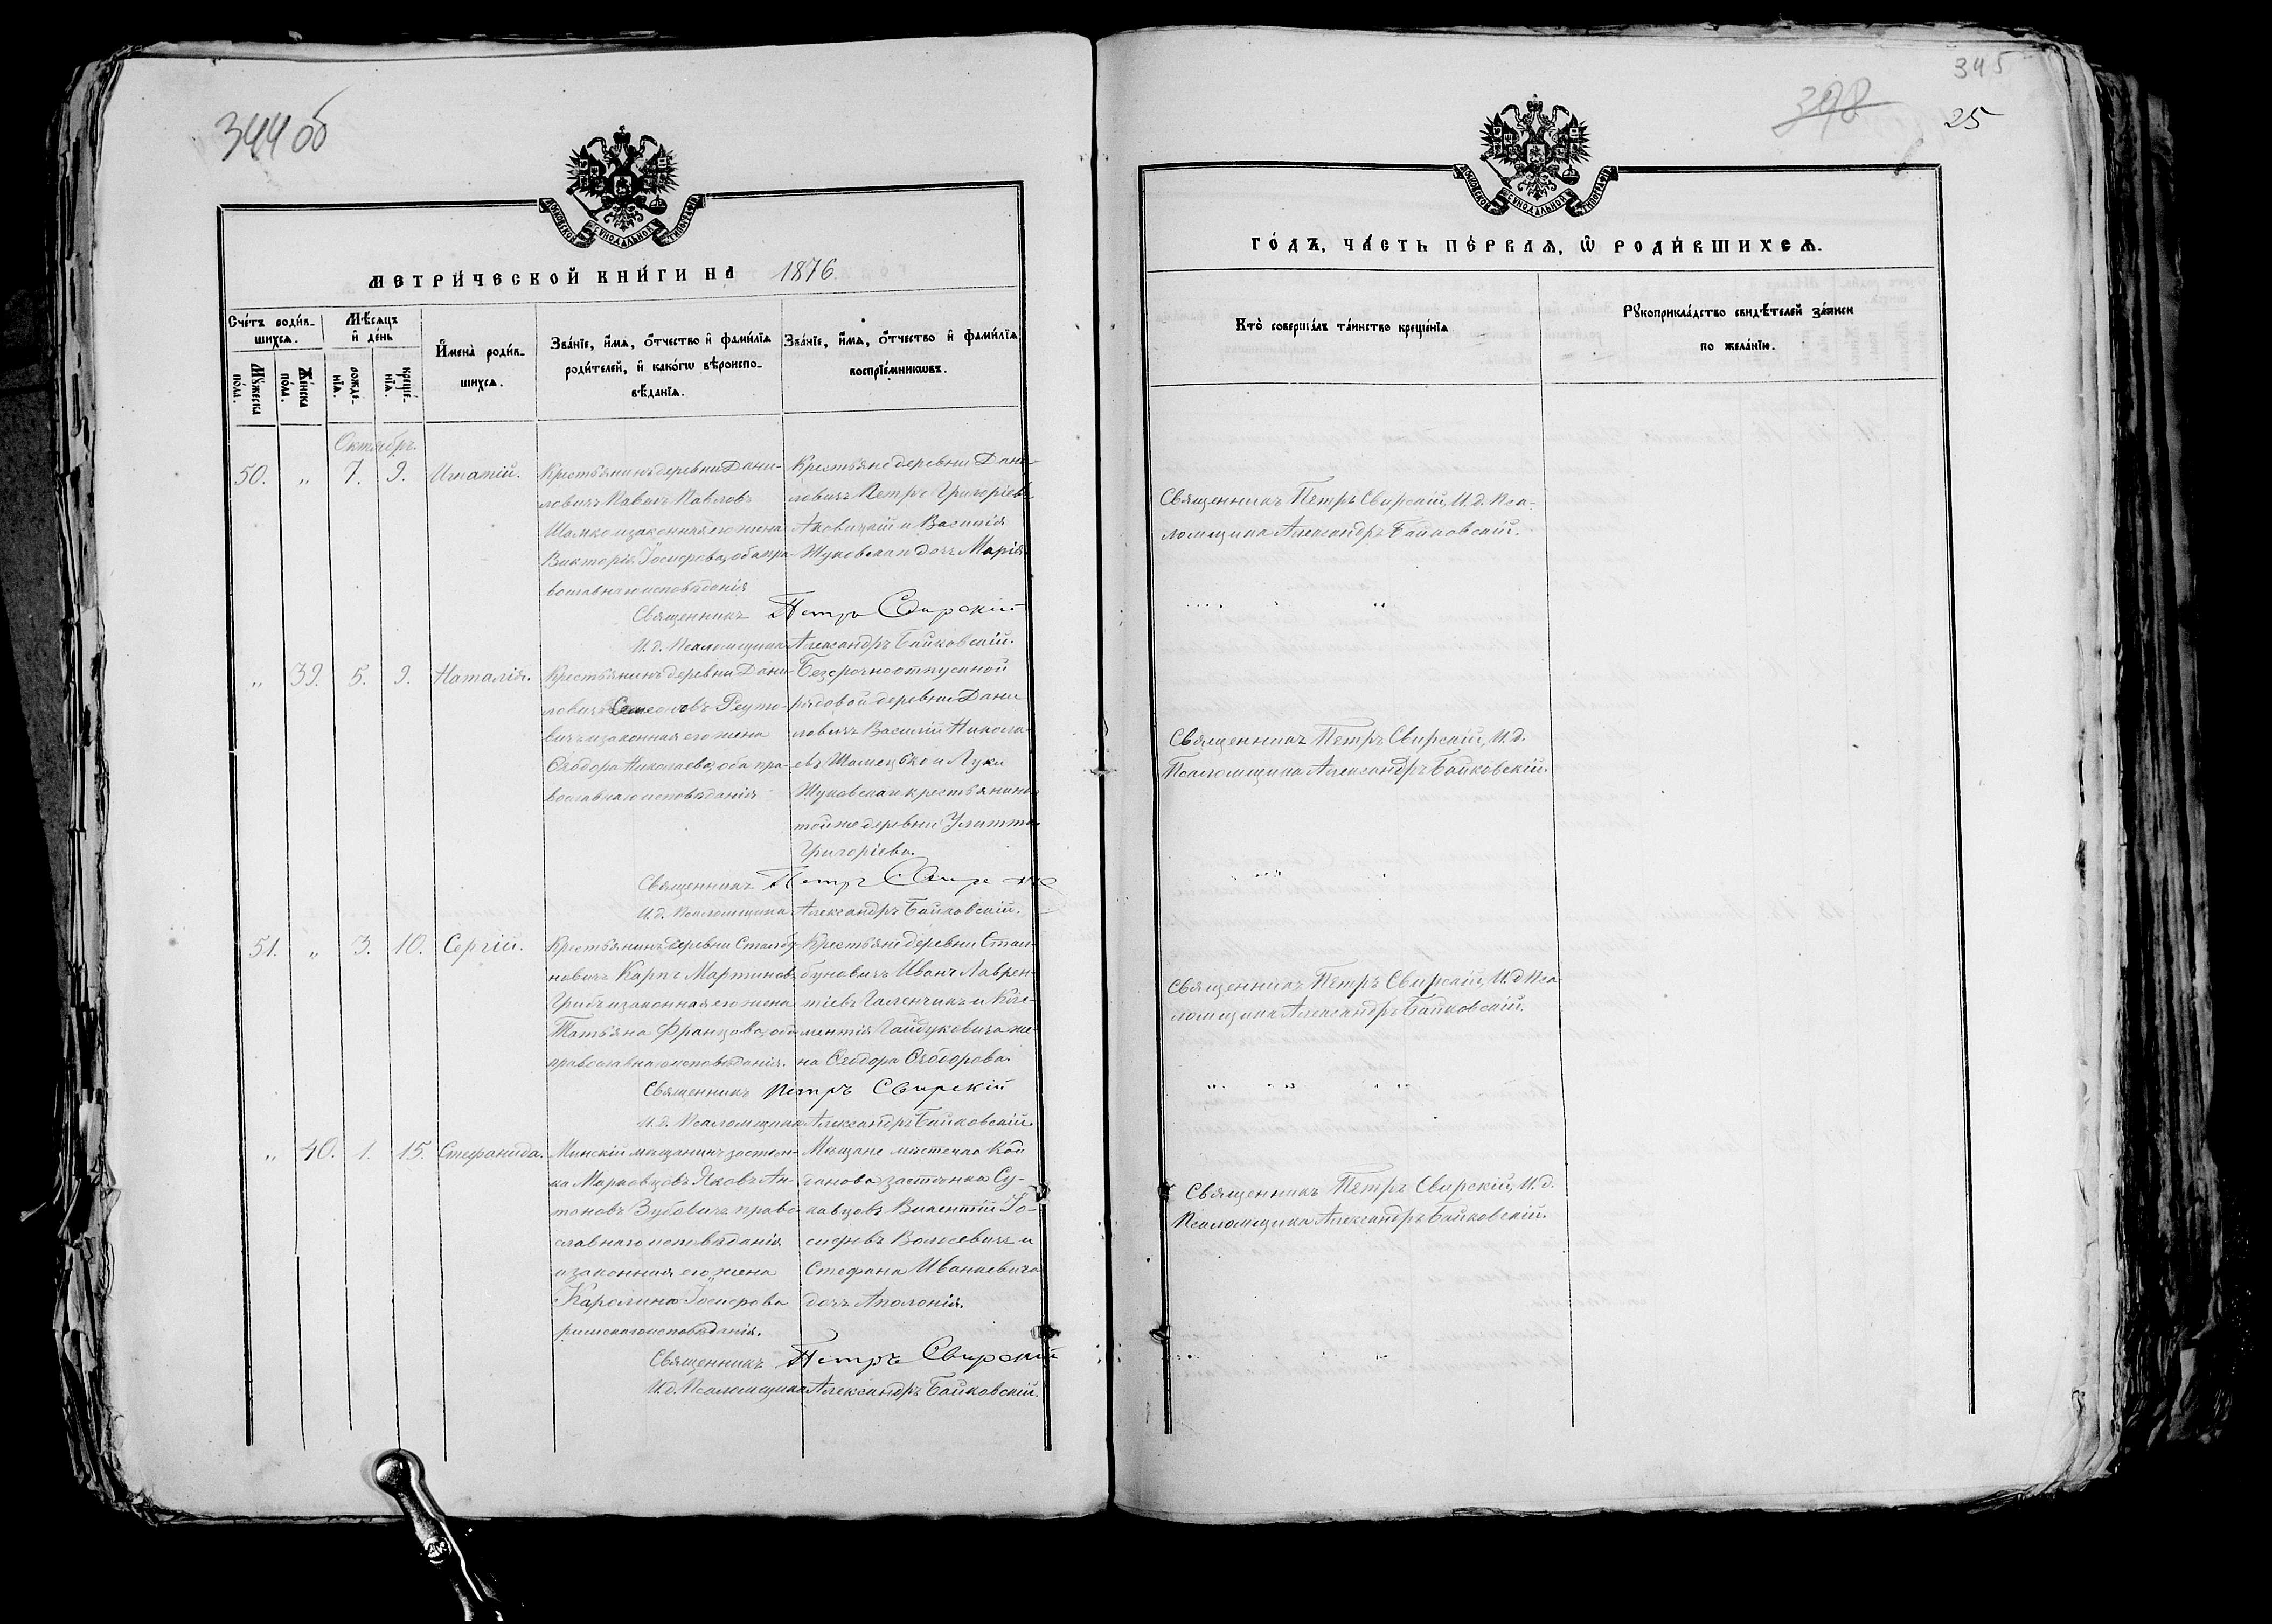 344 об
МОСКОВСКОЙ СѴНОДАЛЬНОЙ ТИПОГРАФІИ
МЕТРИ́ЧЕСКОЙ КНИ́ГИ НА 1876.
Сче́тъ роди́в-
шихсѧ.
Мѣ́сѧцъ
и҆ де́нь
Мꙋ́жеска
по́ла.
Же́нска
по́ла.
рожде́-
нїѧ.
креще́-
нїѧ.
И҆мена̀ роди́в-
шихсѧ.
Зва́нїе, и҆́мѧ, ѻ҆́тчество и҆ фами́лїѧ
роди́телей, и҆ како́гѡ вѣроиспо-
вѣ́данїѧ.
Зва́нїе, и҆́мѧ, ѻ҆́тчество и҆ фами́лїѧ
воспрїе́мникѡвъ.
Октябрь.
50. „ 7. 9. Игнатій.
Крестьянинъ деревни Дани-
ловичъ Павелъ Павловъ
Шамко и законная его жена
Викторія Іосифова, оба пра-
вославнаго исповѣданія
Крестьяне деревни Дани-
ловичъ Петръ Григорьевъ
и Василія
Жуковскаго дочь Марія.
Священникъ Петръ Свирскій
И.д. Псаломщика Александръ Байковскій.
„ 39. 5. 9. Наталія.
Крестьянинъ деревни Дани-
ловичъ Реуто-
вичъ и законная его жена
Ѳеодора Николаева, оба пра-
вославнаго исповѣданія
Безсрочноотпускной
рядовой деревни Дани-
ловичъ Василій Никола-
евъ и Луки
Жуковскаго крестьянина
той же деревни
Григоріева.
Священникъ Петръ Свирскій
И.д. Псаломщика Александръ Байковскій.
51. „ 3. 10. Сергій.
Крестьянинъ деревни Столбу-
новичъ Карпъ Мартиновъ
Грибъ и законная его жена
Татьяна Францова, оба
православнаго исповѣданія.
Крестьяне деревни Стол-
буновичъ Иванъ Лаврен-
тіевъ Галенчикъ и Кли-
ментія Гайдуковича же-
на Ѳеодора Ѳеодорова.
Священникъ Петръ Свирскій
И.д. Псаломщика Александръ Байковскій.
„ 40. 1. 15. Стефанида.
Минскій мѣщанинъ застѣн-
ка Марковцовъ Яковъ Ан-
тоновъ Зубовичъ право-
славнаго исповѣданія
и законная его жена
Каролина Іосифова
римскаго исповѣданія.
Мѣщане мѣстечка Кой-
данова застѣнка Су-
ковцовъ Викентій Іо-
сифовъ и
Стефана Иванкевича
дочь Аполонія.
Священникъ Петръ Свирскій
И.д. Псаломщика Александръ Байковскій.
345
398
25
МОСКОВСКОЙ СѴНОДАЛЬНОЙ ТИПОГРАФІИ
ГО́ДЪ, ЧА́СТЬ ПЕ́РВАѦ, Ѡ҆ РОДИ́ВШИХСѦ.
Кто̀ соверша́лъ та́инство креще́нїѧ
Рꙋкоприкла́дство свидѣ́телей за́писи
по жела́нїю.
Священникъ Петръ Свирскій, И.д. Пса-
ломщика Александръ Байковскій.
Священникъ Петръ Свирскій, И.д.
Псаломщика Александръ Байковскій.
Священникъ Петръ Свирскій, И.д. Пса-
ломщика Александръ Байковскій.
Священникъ Петръ Свирскій, И.д.
Псаломщика Александръ Байковскій.